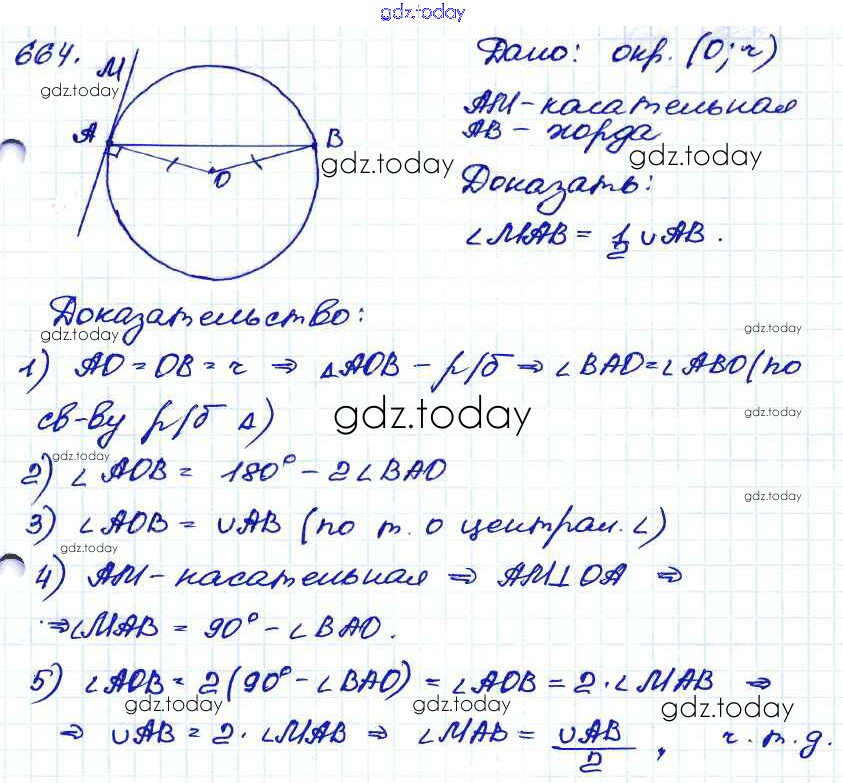 gdz.today
664.
M
gdz.today
A
B
O
Дано: окр. (O; r)
AM - касательная
AB - хорда
gdz.today
gdz.today
Доказать:
∠MAB = 1/2 ∪AB.
Доказательство:
gdz.today
gdz.today
1) AO = OB = r ⇒ △AOB - р/б ⇒ ∠BAO = ∠ABO (по
св-ву р/б △)
gdz.today
gdz.today
gdz.today
2) ∠AOB = 180° - 2∠BAO
gdz.today
3) ∠AOB = ∪AB (по т. о централ. ∠)
gdz.today
4) AM - касательная ⇒ AM⊥OA ⇒
⇒ ∠MAB = 90° - ∠BAO.
5) ∠AOB = 2(90° - ∠BAO) = ∠AOB = 2·∠MAB ⇒
gdz.today
gdz.today
gdz.today
⇒ ∪AB = 2·∠MAB ⇒ ∠MAB = ∪AB/2, ч.т.д.